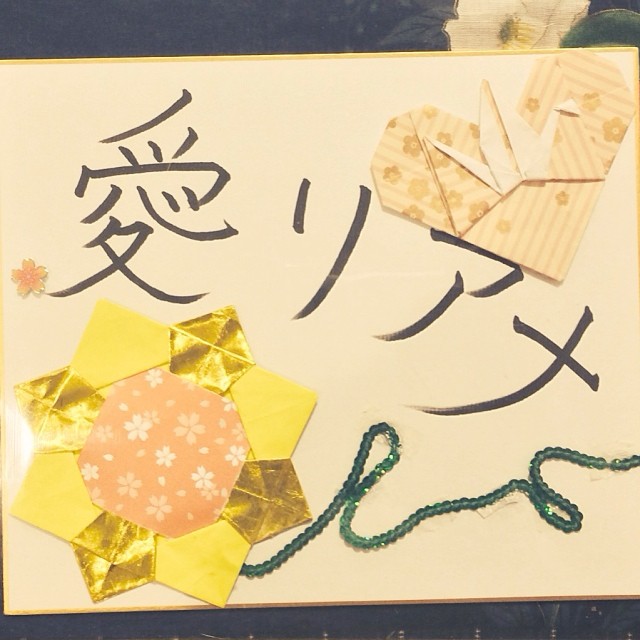 愛リアメ